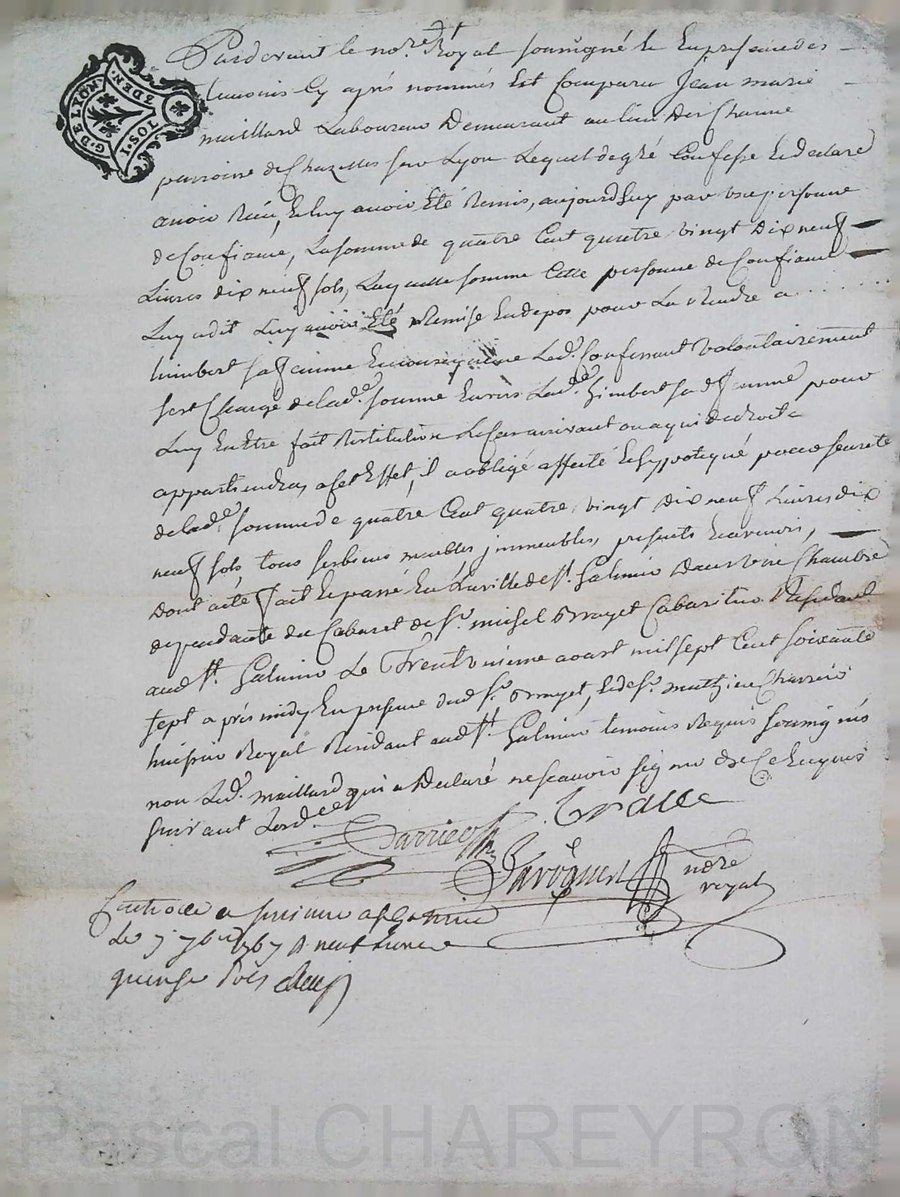 Pardevant le nore Royal soussigné & en presence des
temoins cy aprés nommés est comparu Jean marie
maillard Laboureur Demeurant au lieu Des Channe
parroisse de Chazelles sur Lyon Lequel de gré Confesse & declare
avoir Reçu, & luy avoir Eté Remis, aujourdhuy par une personne
de Confiance, La somme de quatre Cent quatre vingt Dix neuf
Livres dix neuf sols, Laquelle somme Cette personne de Confiance
Luy a dit Luy avoir Eté Remise En depos pour La Rendre a
himbert sa femme En Led. Confessant volontairement
sest Chargé de lade. somme Envers Lade. himbert sa femme pour
Luy En Etre fait Restitution Le Cas arrivant ou a qui de droit
appartiendra, a Cet Effet, il a obligé affecté & hypotequé pour seureté
de lade. somme de quatre Cent quatre vingt Dix neuf Livres Dix
neuf sols tous ses biens meubles immeubles, presents & avenirs,
Dont acte fait & passé En la ville de St. Galmier Dans une Chambre
dependante du Cabaret de Sr. michel Cabaretier Residant
aud St. Galmier Le Trente unieme aoust mil sept Cent soixante
sept a prés midy En presence dud Sr. & de Sr. mathieu Charrier
huissier Royal Residant aud St. Galmier temoins Requis soussignés
non Led. maillard qui a Declaré ne scavoir signer de Ce Enquis
suivant Lordce
nore
royal
Le 7 7bre 1767 R neuf livre
quinze sols
G. DE LYON.
3 DEN.
Pascal CHAREYRON